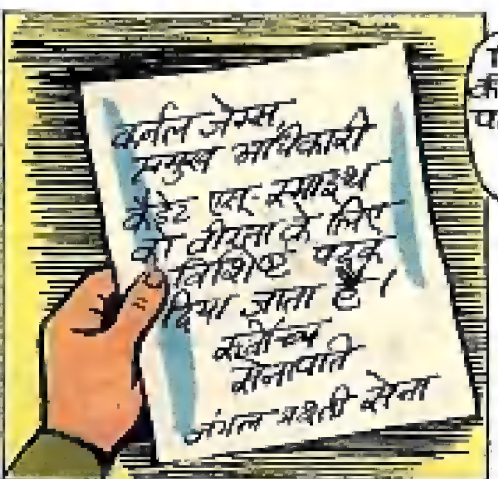 कर्नल जेम्स,
प्रमुख अधिकारी
कैडेट एस. स्माइथ
को वीरता के लिए
विशिष्ट पदक
दिया जाता है।
सर्वोच्च
सेनापति
जंगल गश्ती सेना